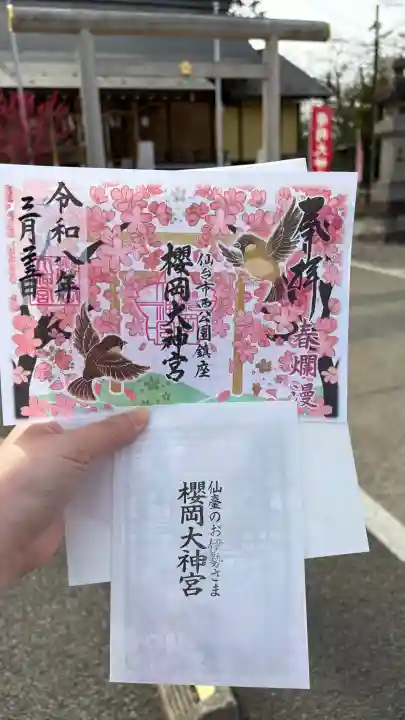 奉拝
春爛漫
仙台市西公園鎮座
櫻岡大神宮
令和八年
仙臺のお伊勢さま
櫻岡大神宮